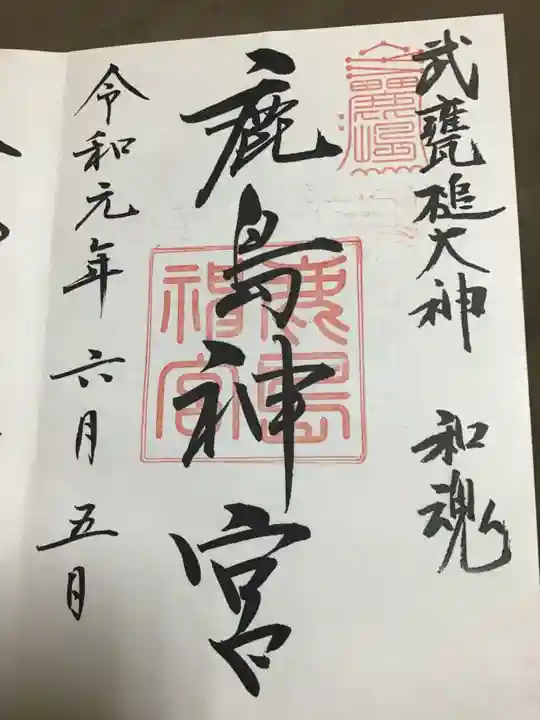 武甕槌大神 和魂
鹿島神宮
鹿島
神宮
令和元年六月五日